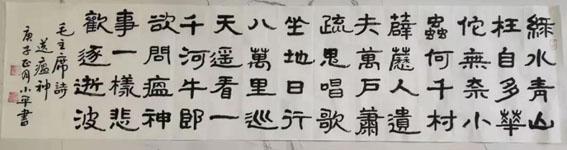 綠水青山
枉自多華
佗無奈小
蟲何千村
薜藶人遺
矢萬戶蕭
疏鬼唱歌
坐地日行
八萬里巡
天遥看一
千河牛郎
欲問瘟神
事一樣悲
歡逐逝波
毛主席詩
送瘟神
庚子正月小平書